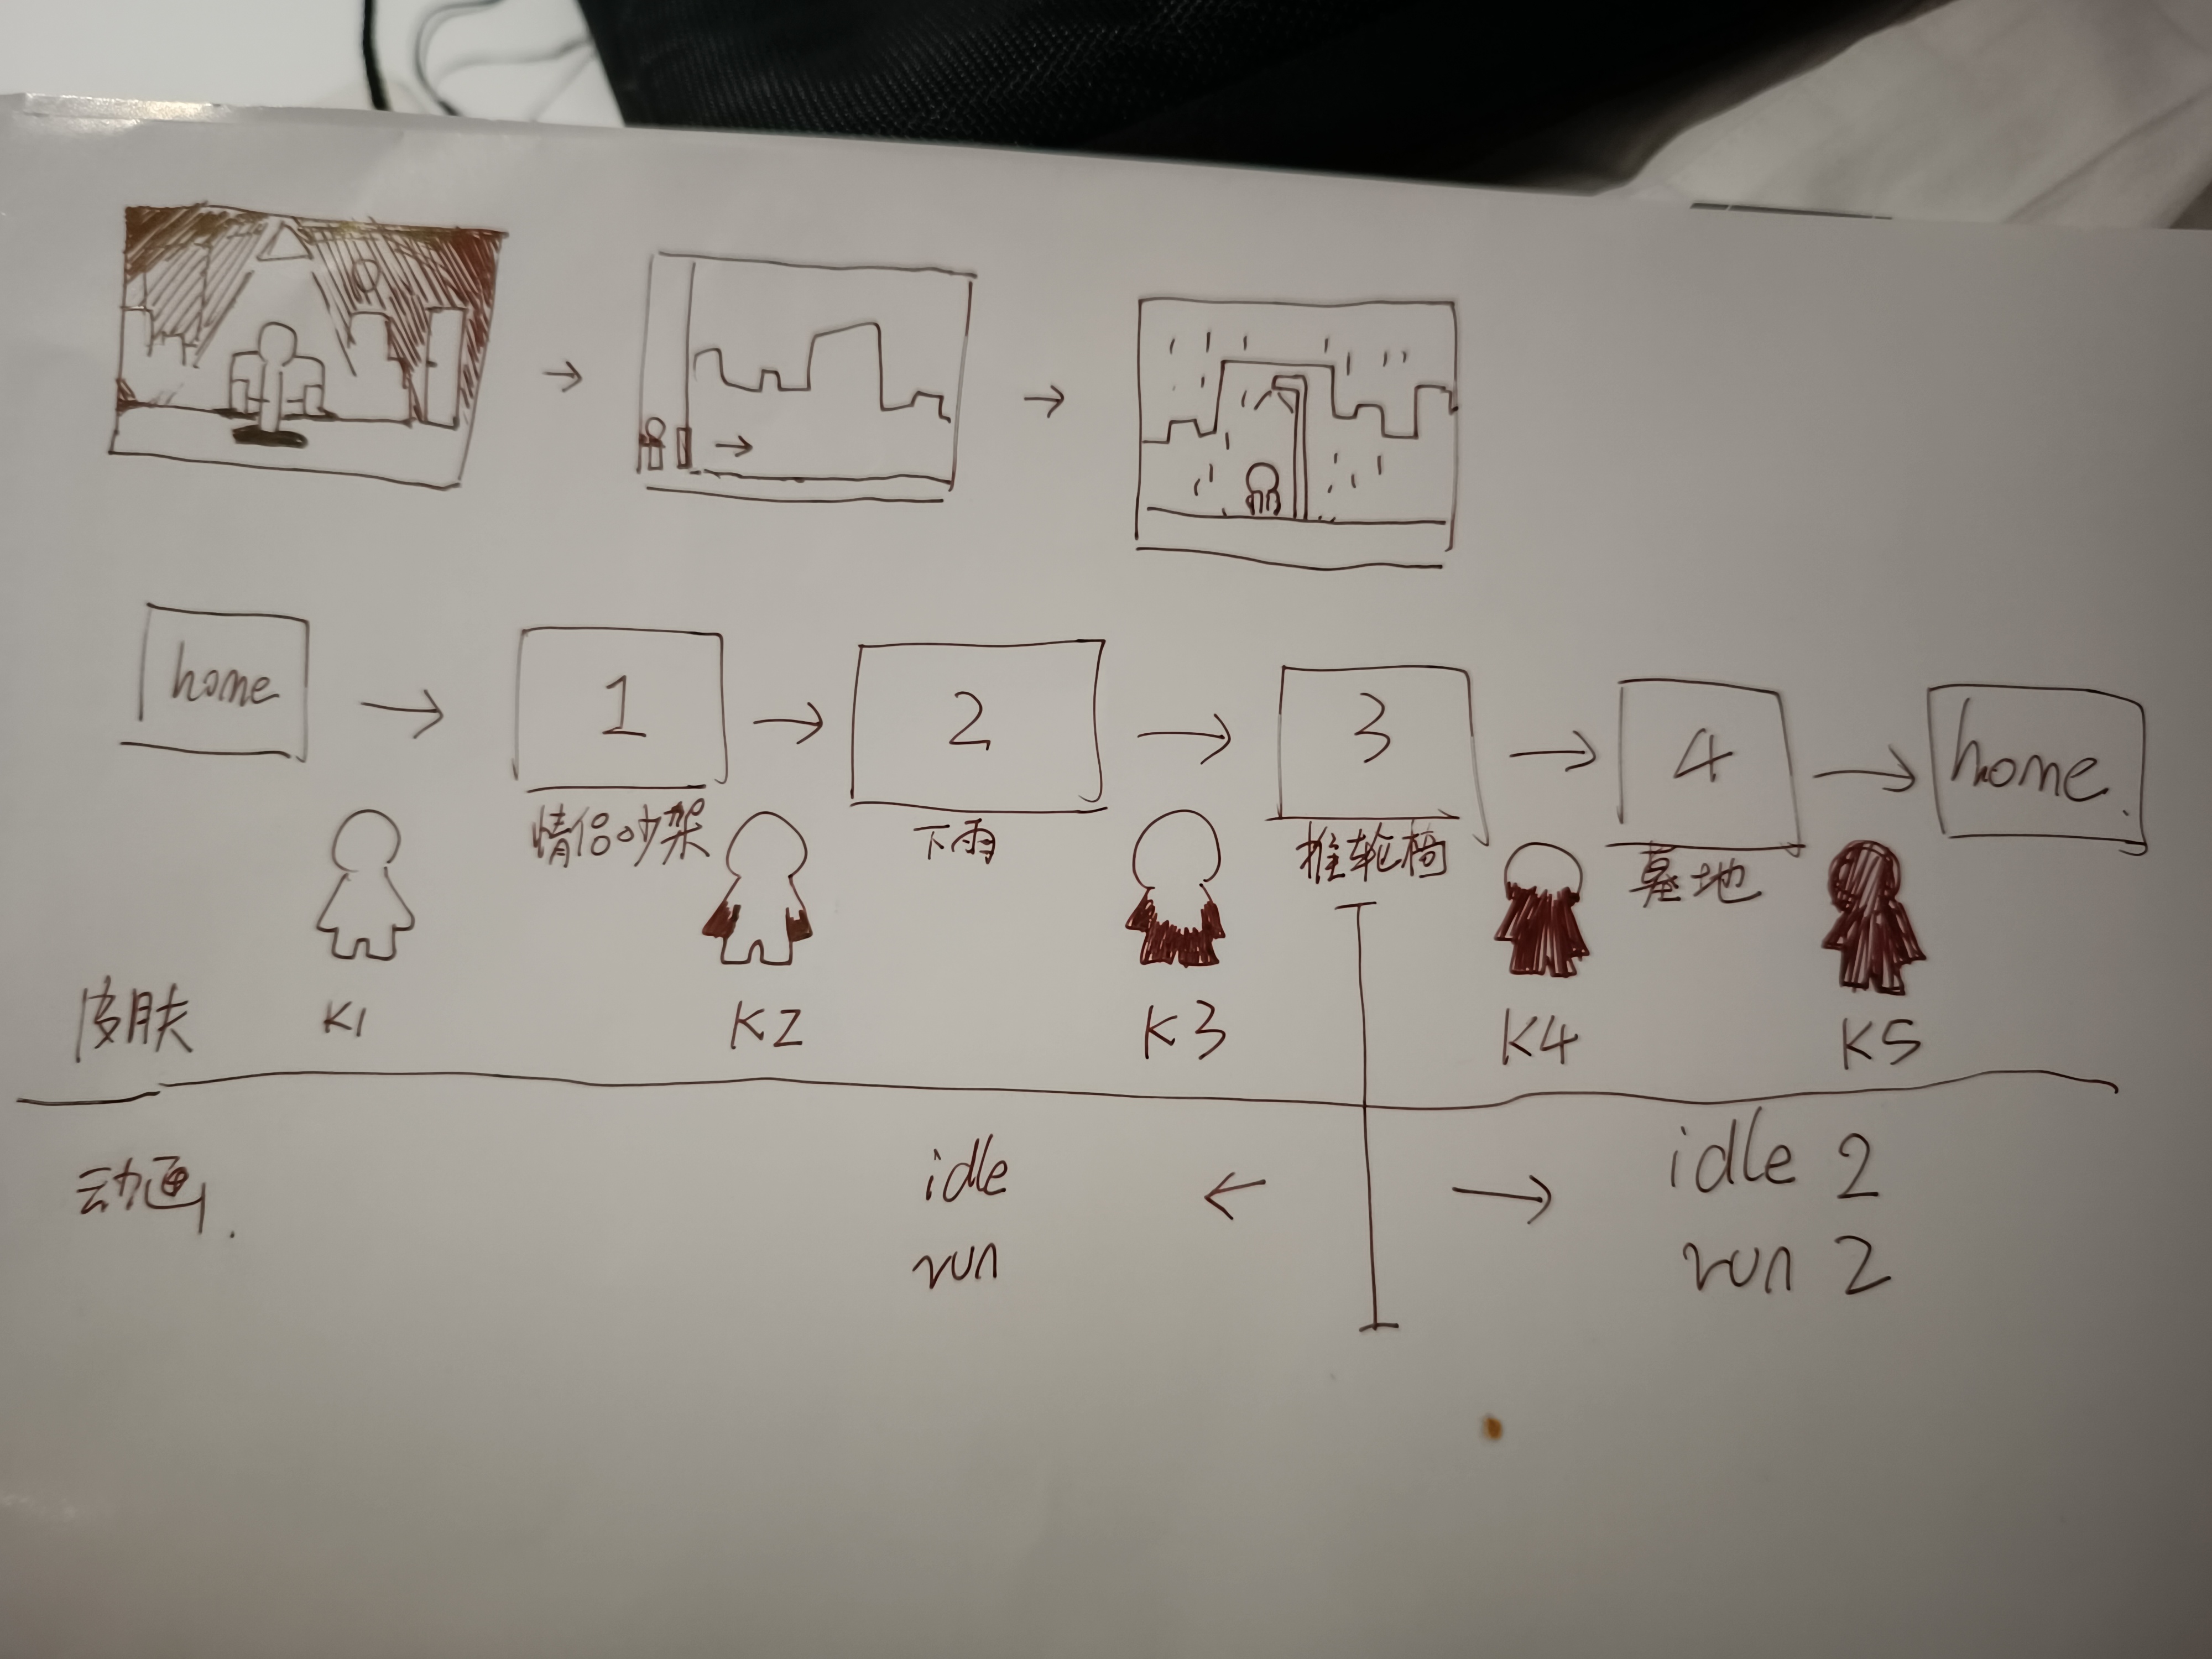 home 1 2 3 4 home.
情侣吵架 下雨 推轮椅 墓地
皮肤 K1 K2 K3 K4 K5
动画. idle idle 2
run run 2